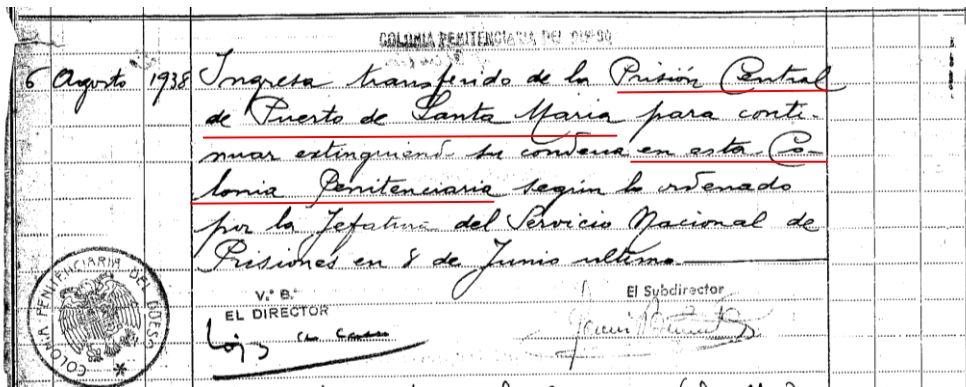 COLONIA PENITENCIARIA DEL DUESO
6 Agosto 1938 Ingresa transferido de la Prisión Central
de Puerto de Santa Maria para conti-
nuar extinguiendo su condena en esta Co-
lonia Penitenciaria según lo ordenado
por la Jefatura del Servicio Nacional de
Prisiones en 8 de Junio ultimo
V.º B.º
EL DIRECTOR
El Subdirector
COLONIA PENITENCIARIA DEL DUESO